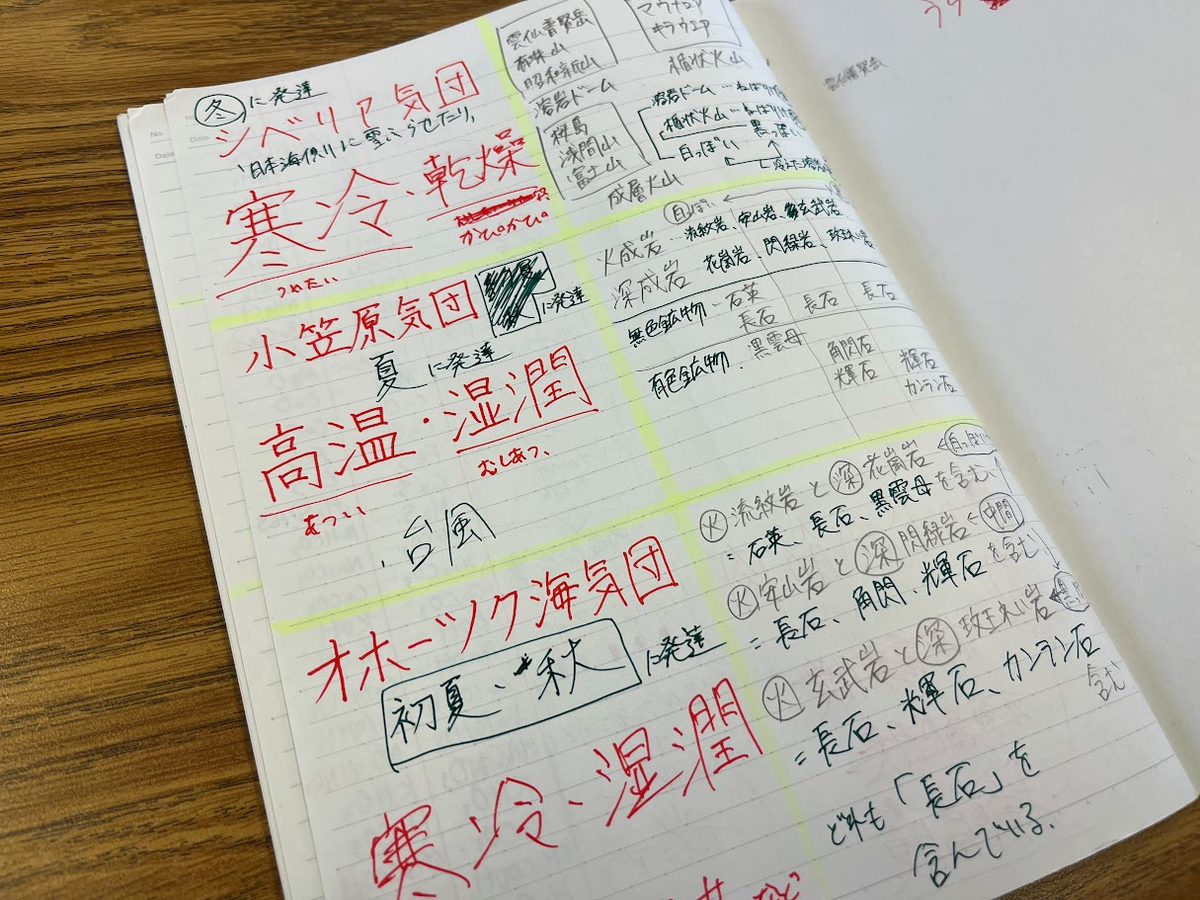 冬に発達
シベリア気団
日本海側に雪ふらせたり、
寒冷・乾燥
かぴかぴ
つめたい
小笠原気団
に発達
夏に発達
高温・湿潤
むしあつ、
あつい
・台風
オホーツク海気団
初夏、秋に発達
寒冷・湿潤
など
雲仙普賢岳
有珠山
昭和新山
溶岩ドーム
桜島
浅間山
富士山
成層火山
マウナロア
キラウエア
楯状火山
溶岩ドーム…ねばり
楯状火山…ねばり
白っぽい 黒っぽい
白っぽい
火成岩…流紋岩、安山岩、玄武岩
深成岩 花崗岩、閃緑岩、斑れい岩
無色鉱物…石英 長石 長石
長石
有色鉱物.黒雲母 角閃石 輝石
輝石 カンラン石
火 流紋岩と深 花崗岩 ←白っぽい
=石英、長石、黒雲母を含む、
火 安山岩と深 閃緑岩 ←中間
=長石、角閃、輝石を含む、
火 玄武岩と深 斑れい岩
=長石、輝石、カンラン石
含む
どれも「長石」を
含んでいる.
雲仙普賢岳